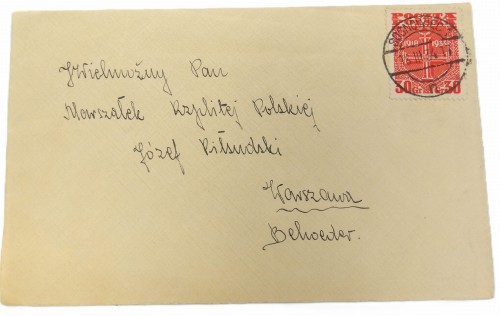 POCZTA
1918 1933
30 GR. 30
JWielmożny Pan
Marszałek Rzplitej Polskiej
Józef Piłsudski
Warszawa
Belweder.